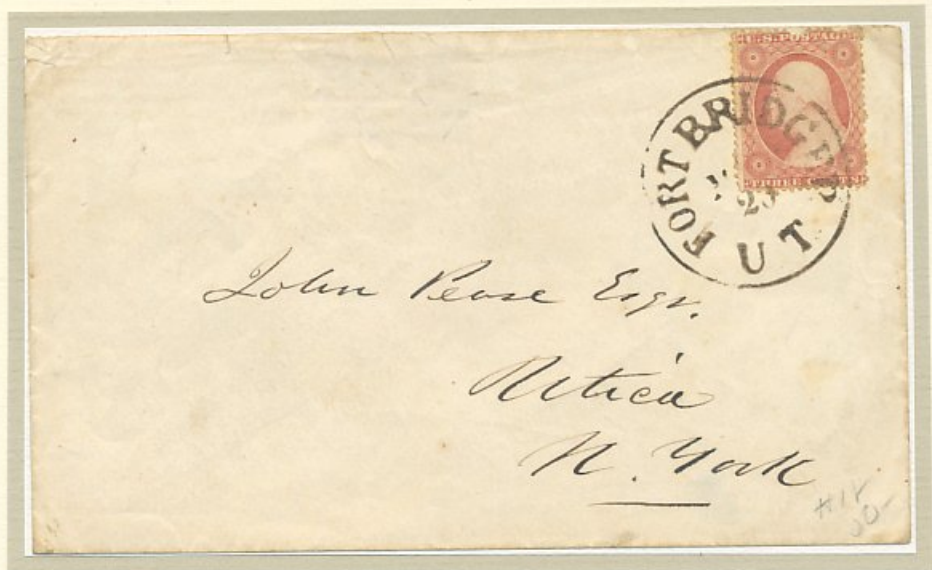 U.S. POSTAGE
THREE CENTS
FORT BRIDGER
23
U T
John Pease Esqr.
Utica
N. York